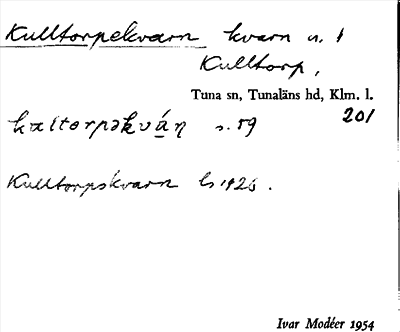 Kulltorpekvarn kvarn u. 1
Kulltorp,
Tuna sn, Tunaläns hd, Klm. l.
201
kaltorpəkvá̱ɳ s. 59
Kulltorpskvarn Ls 1926.
Ivar Modéer 1954